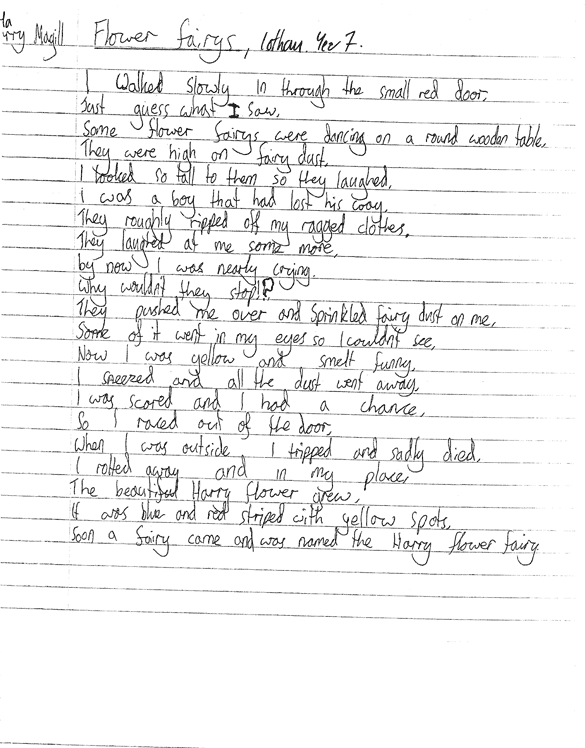 Harry Magill Flower fairys, Lothan. Year 7.
I Walked slowly in through the small red door,
Just guess what I saw,
Some flower fairys were dancing on a round wooden table,
They were high on fairy dust,
I looked so tall to them so they laughed,
I was a boy that had lost his way,
They roughly ripped off my ragged clothes,
They laughed at me some more,
by now I was nearly crying.
Why wouldn't they stop!?
They pushed me over and sprinkled fairy dust on me,
Some of it went in my eyes so I couldn't see,
Now I was yellow and smelt funny,
I sneezed and all the dust went away,
I was scared and I had a chance,
So I raced out of the door,
When I was outside I tripped and sadly died,
I rotted away and in my place,
The beautiful Harry flower grew,
It was blue and red striped with yellow spots,
Soon a fairy came and was named the Harry flower fairy